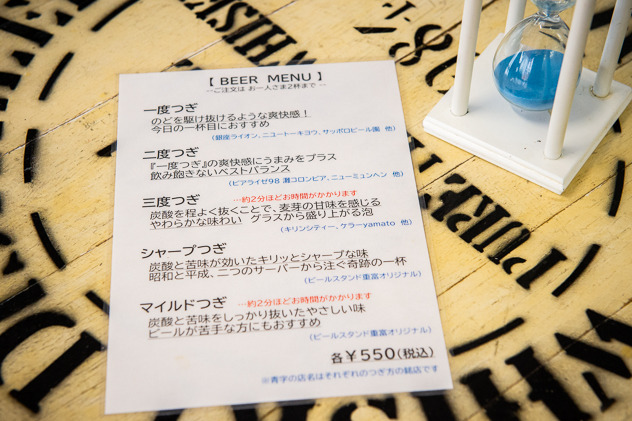 【 BEER MENU 】
--ご注文は お一人さま2杯まで --
一度つぎ
のどを駆け抜けるような爽快感！
今日の一杯目におすすめ
（銀座ライオン、ニュートーキヨウ、サッポロビール園 他）
二度つぎ
『一度つぎ』の爽快感にうまみをプラス
飲み飽きないベストバランス
（ビアライゼ98 灘コロンビア、ニューミュンヘン 他）
三度つぎ …約2分ほどお時間がかかります
炭酸を程よく抜くことで、麦芽の甘味を感じる
やわらかな味わい グラスから盛り上がる泡
（キリンシティー、ケラーyamato 他）
シャープつぎ
炭酸と苦味が効いたキリッとシャープな味
昭和と平成、二つのサーバーから注ぐ奇跡の一杯
（ビールスタンド重富オリジナル）
マイルドつぎ …約2分ほどお時間がかかります
炭酸と苦味をしっかり抜いたやさしい味
ビールが苦手な方にもおすすめ
（ビールスタンド重富オリジナル）
各￥550（税込）
※青字の店名はそれぞれのつぎ方の銘店です